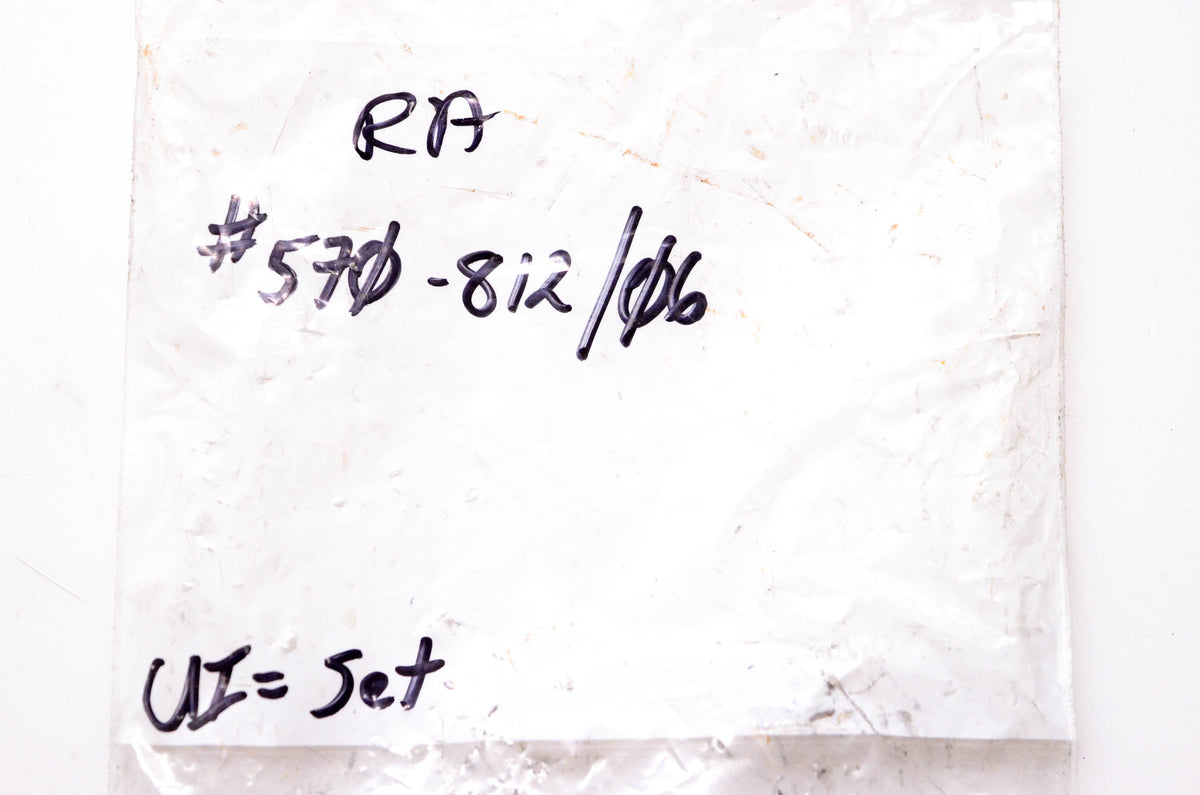 RA
#570-812/06
UI= Set